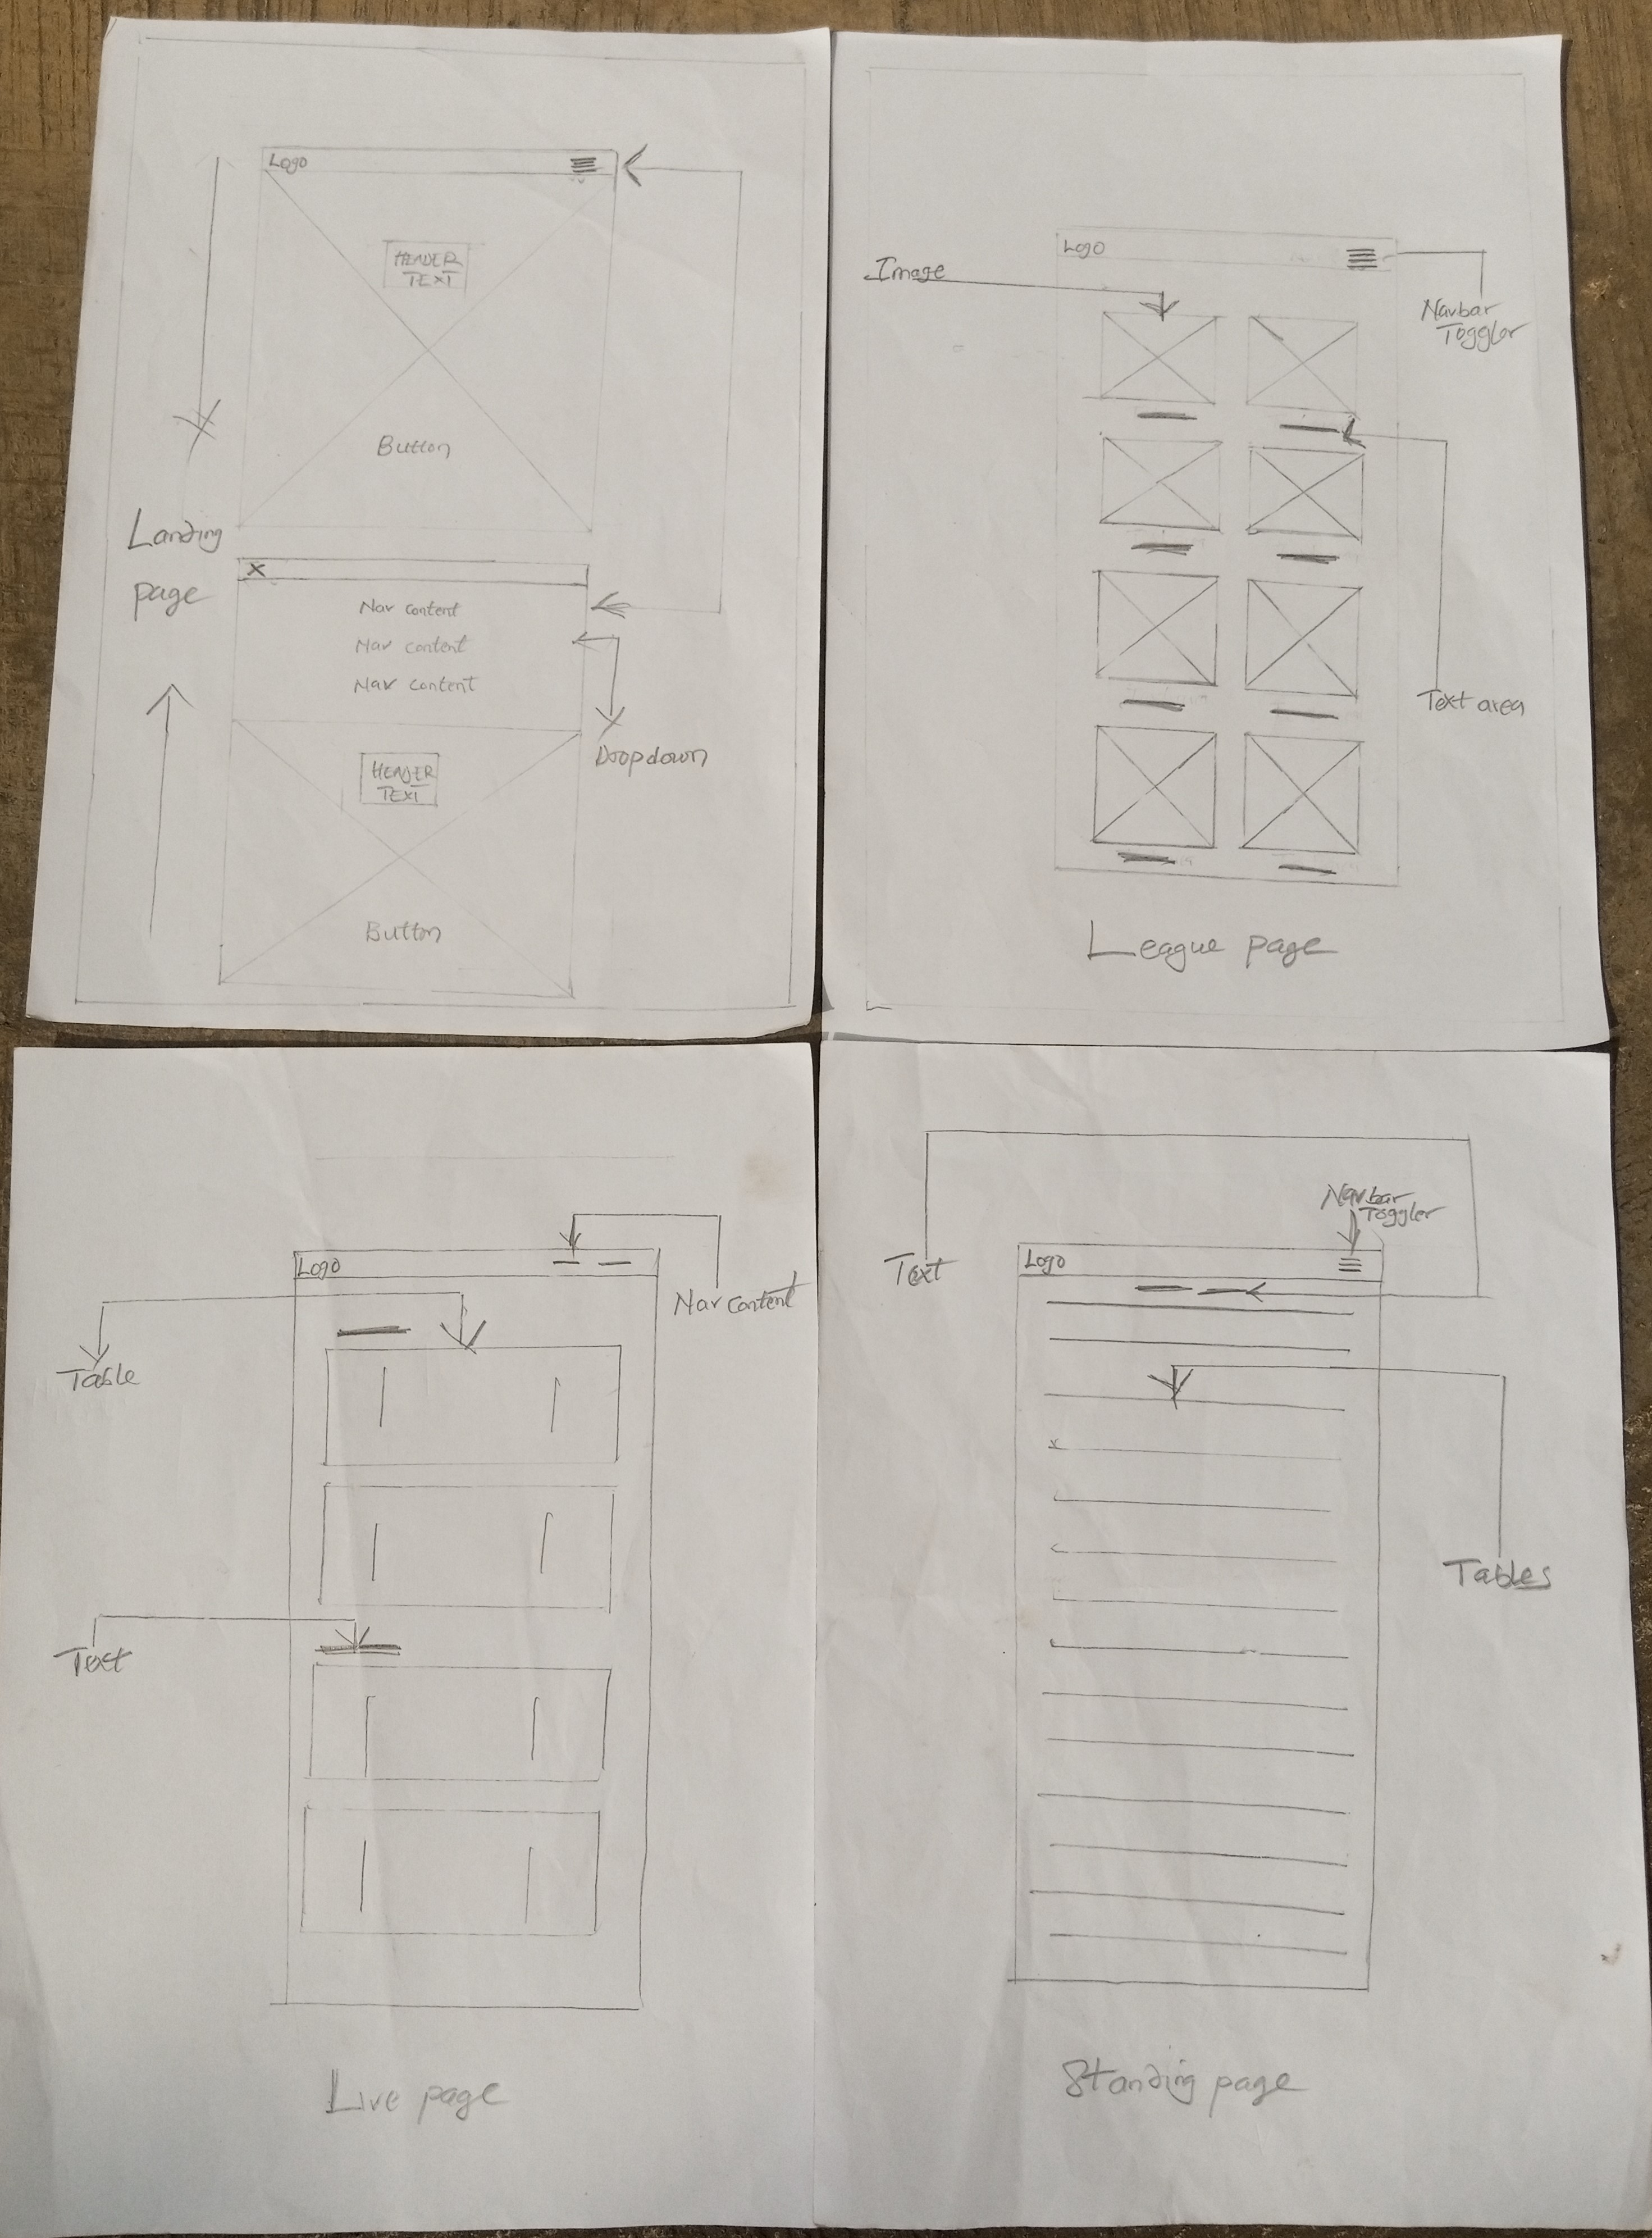 Logo
HEADER
TEXT
Button
Landing
page
X
Nav content
Nav content
Nav content
Dropdown
HEADER
TEXT
Button
Logo
Image
Navbar
Toggler
Text area
League page
Logo
Nav content
Table
Text
Live page
Navbar
Toggler
Text
Logo
Tables
Standing page